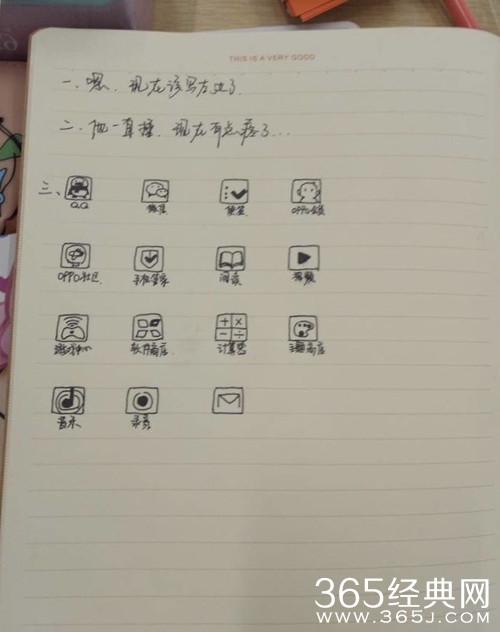 THIS IS A VERY GOOD
一、嗯,现在该写左边了.
二、他一直撞,现在有点疼了...
三、
QQ 微信 便签
OPPO社区 手机管家 阅读 视频
游戏中心 软件商店 计算器 主题商店
音乐 录音
365经典网
WWW.365J.COM